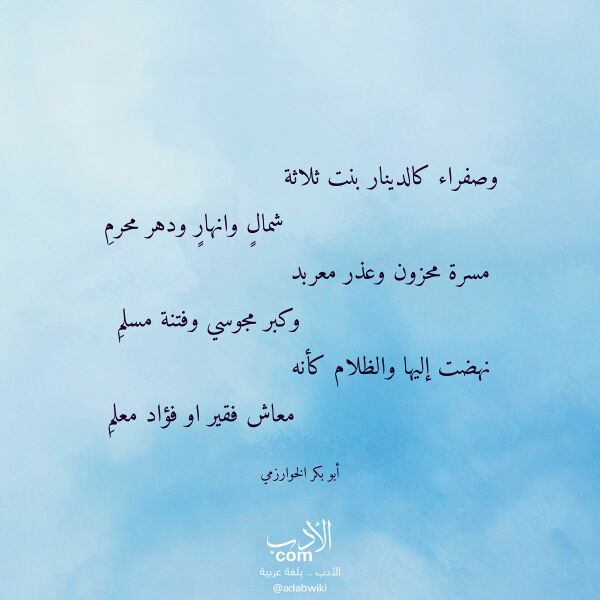 وصفراء كالدينار بنت ثلاثة
شمالٍ وانهارٍ ودهر محرمِ
مسرة محزون وعذر معربد
وكبر مجوسي وفتنة مسلمِ
نهضت إليها والظلام كأنه
معاش فقير او فؤاد معلمِ
أبو بكر الخوارزمي
الأدب
com
الأدب .. بلغة عربية
@adabwiki